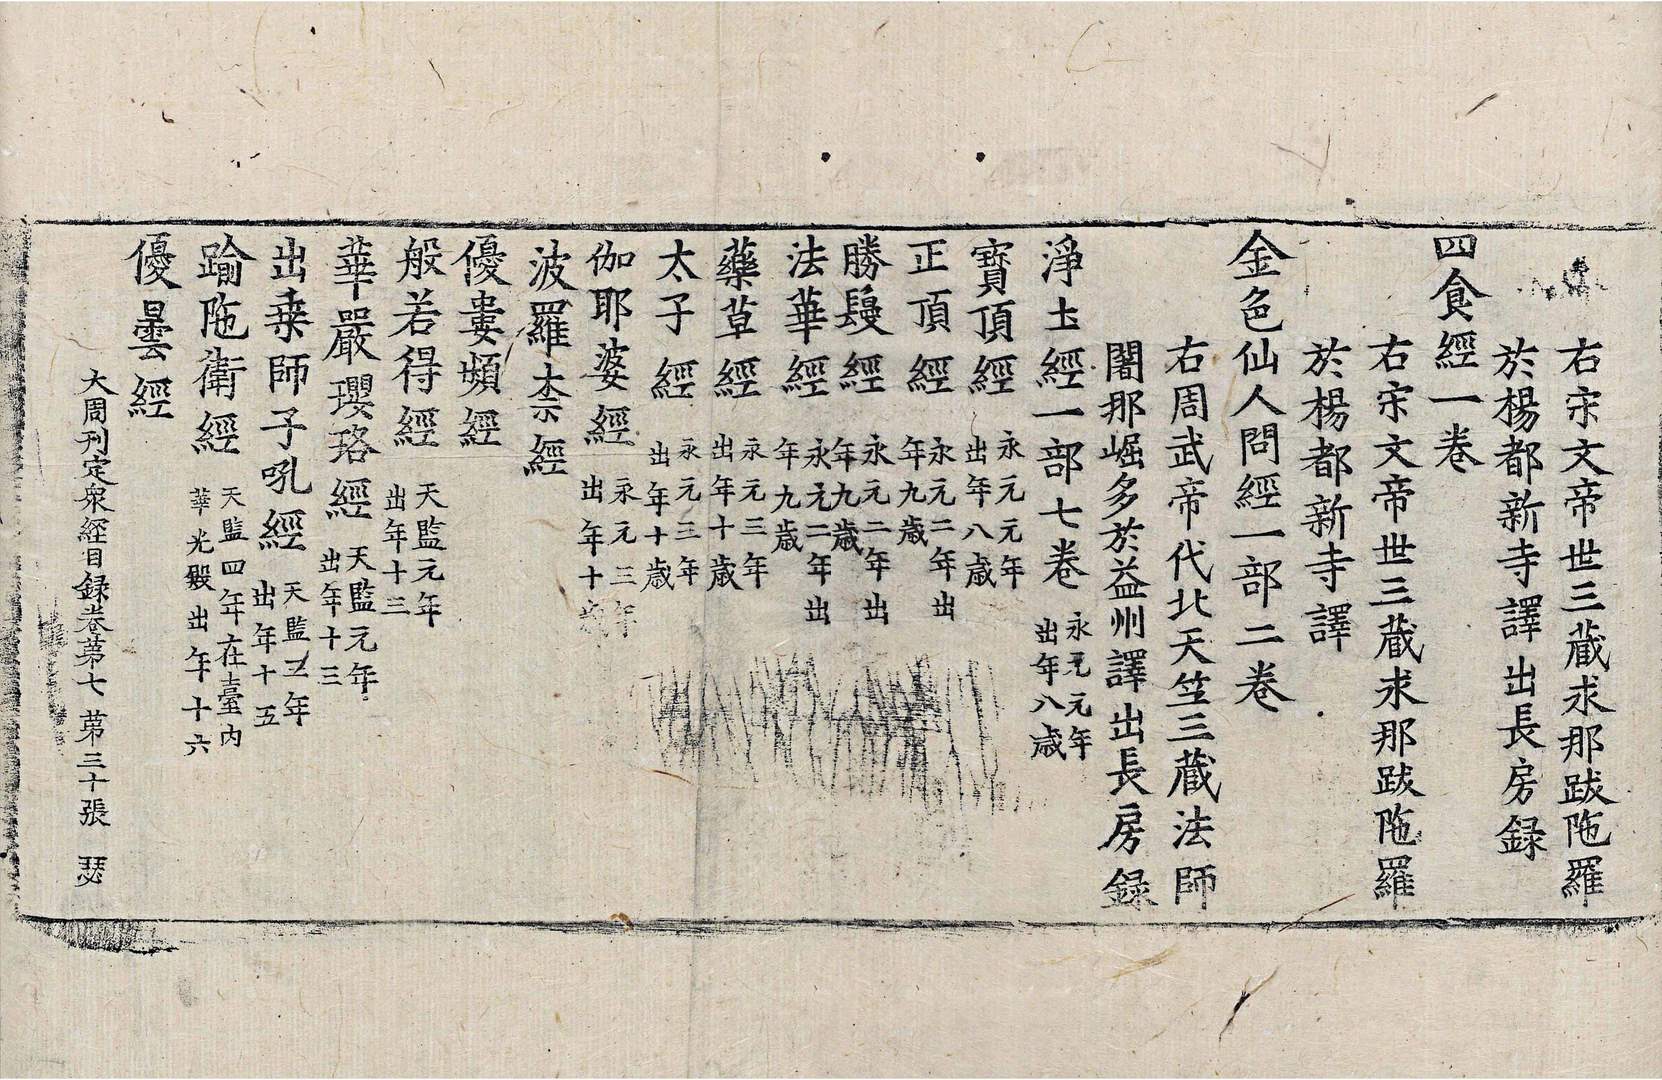 右宋文帝世三藏求那跋陁羅
於楊都新寺譯出長房録
四食經一卷
右宋文帝世三藏求那跋陁羅
於楊都新寺譯
金色仙人問經一部二卷
右周武帝代北天竺三藏法師
闍那崛多於益州譯出長房録
淨土經一部七卷 永元元年出年八歲
寶頂經 永元元年出年八歲
正頂經 永元二年出年九歲
勝鬘經 永元二年出年九歲
法華經 永元二年出年九歲
藥草經 永元三年出年十歲
太子經 永元三年出年十歲
伽耶婆經 永元三年出年十
波羅柰經
優婁頻經
般若得經 天監元年出年十三
華嚴瓔珞經 天監元年出年十三
出乗師子吼經 天監三年出年十五
踰陁衛經 天監四年在臺内華光殿出年十六
優曇經
大周刊定衆經目録卷苐七 苐三十張 瑟